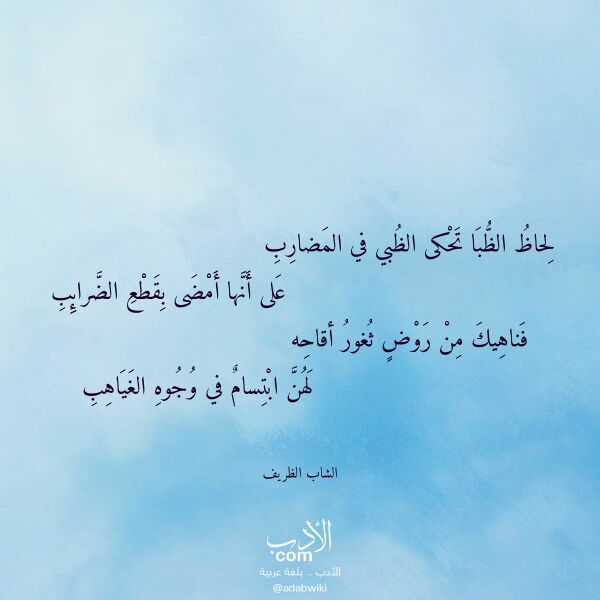 لِحاظُ الظُّبَا تَحْكى الظُبي في المَضارِبِ
عَلى أَنَّها أَمْضَى بِقَطْعِ الضَّرائِبِ
فَناهِيكَ مِنْ رَوْضٍ ثُغورُ أقاحِه
لَهُنَّ ابْتِسامٌ في وُجُوهِ الغَيَاهِبِ
الشاب الظريف
الأدب
com
الأدب .. بلغة عربية
@adabwiki